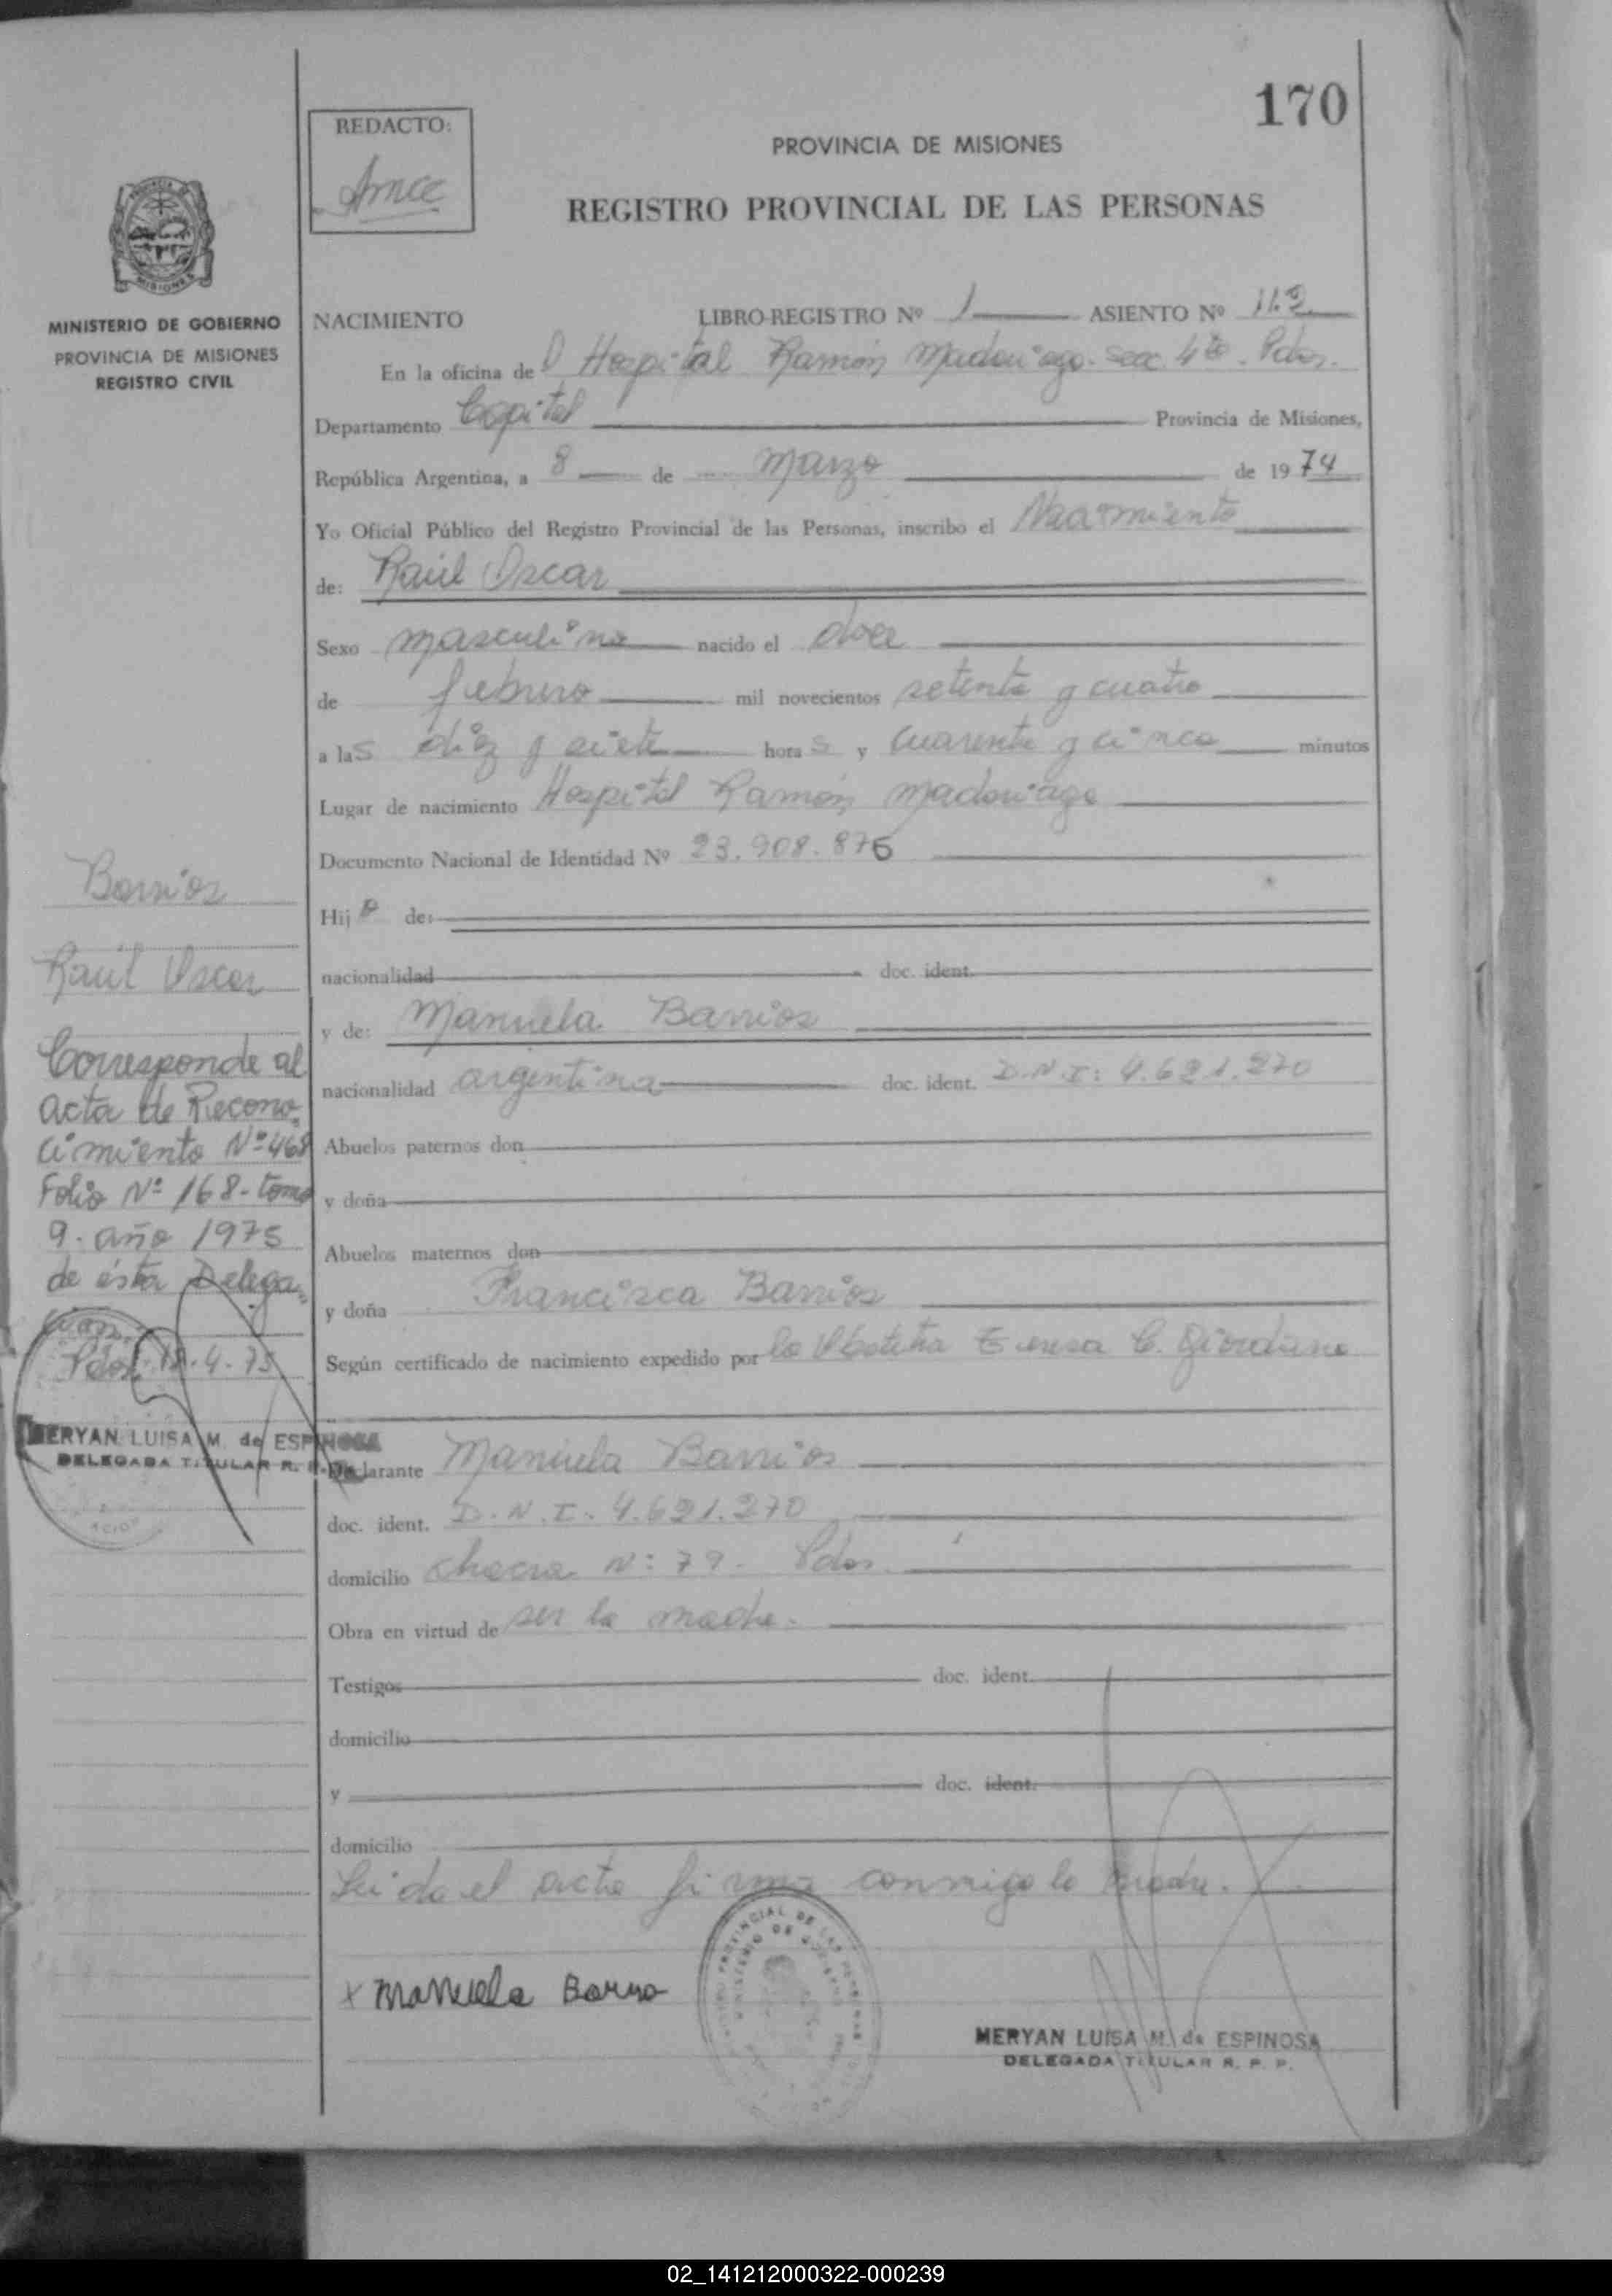 170
REDACTO:
PROVINCIA DE MISIONES
REGISTRO PROVINCIAL DE LAS PERSONAS
MINISTERIO DE GOBIERNO
PROVINCIA DE MISIONES
REGISTRO CIVIL
NACIMIENTO LIBRO-REGISTRO Nº 1 ASIENTO Nº
En la oficina de Hospital Ramón Madariaga. Secc. 4ta. Pdas.
Departamento Capital Provincia de Misiones,
República Argentina, a 8 de Marzo de 1974
Yo Oficial Público del Registro Provincial de las Personas, inscribo el Nacimiento
de: Raúl Oscar
Sexo masculino nacido el doce
de febrero mil novecientos setenta y cuatro
a las diez y siete horas y cuarenta y cinco minutos
Lugar de nacimiento Hospital Ramón Madariaga
Documento Nacional de Identidad Nº 23.908.876
Hijo de:
nacionalidad doc. ident.
y de: Manuela Barrios
nacionalidad argentina doc. ident. D.N.I: 4.621.270
Abuelos paternos don
y doña
Abuelos maternos don
y doña Francisca Barrios
Según certificado de nacimiento expedido por la Obstetra C. Giordano
Declarante Manuela Barrios
doc. ident. D.N.I. 4.621.270
domicilio chacra Nº 79. Pdas.
Obra en virtud de ser la madre.
Testigos doc. ident.
domicilio
y doc. ident.
domicilio
Leida el acta firma conmigo la madre.
x Manuela Barrio
MERYAN LUISA M. de ESPINOSA
DELEGADA TITULAR R. P. P.
Barrios
Raúl Oscar
Corresponde al
acta de Recono-
cimiento Nº 468
Folio Nº 168-tomo
9. año 1975
de ésta Delega-
ción.
Pdas. 18.4.75
MERYAN LUISA M. de ESPINOSA
DELEGADA TITULAR R. P.
02_141212000322-000239